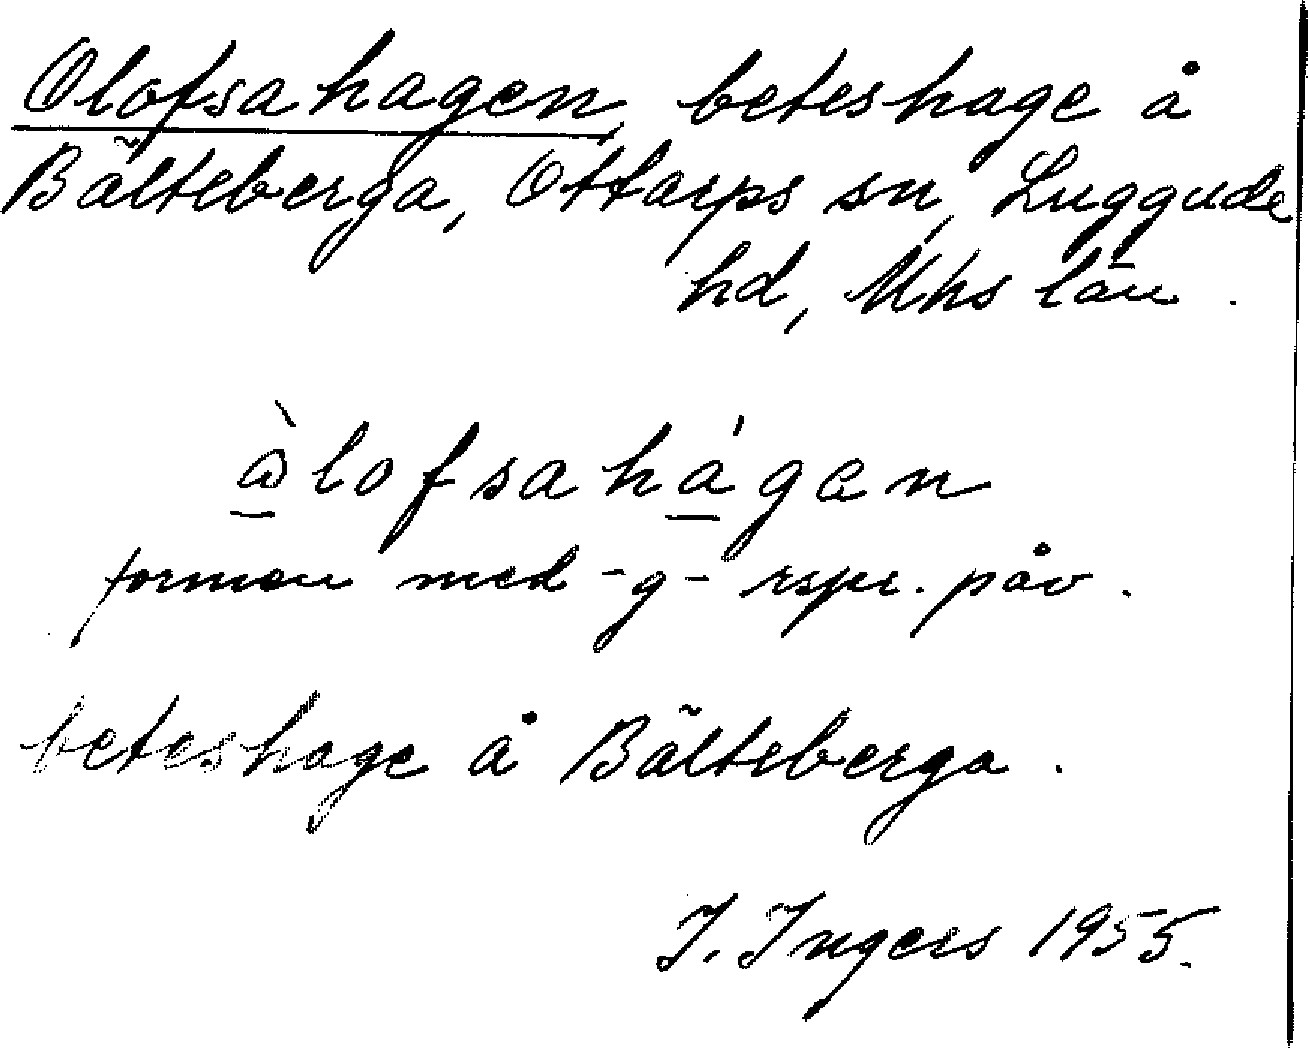 Olofsahagen, beteshage å
Bälteberga, Ottarps sn, Luggude
hd, Mhs län.
àlofsahágen
formen med -g- rspr. påv.
beteshage å Bälteberga.
I. Ingers 1955.